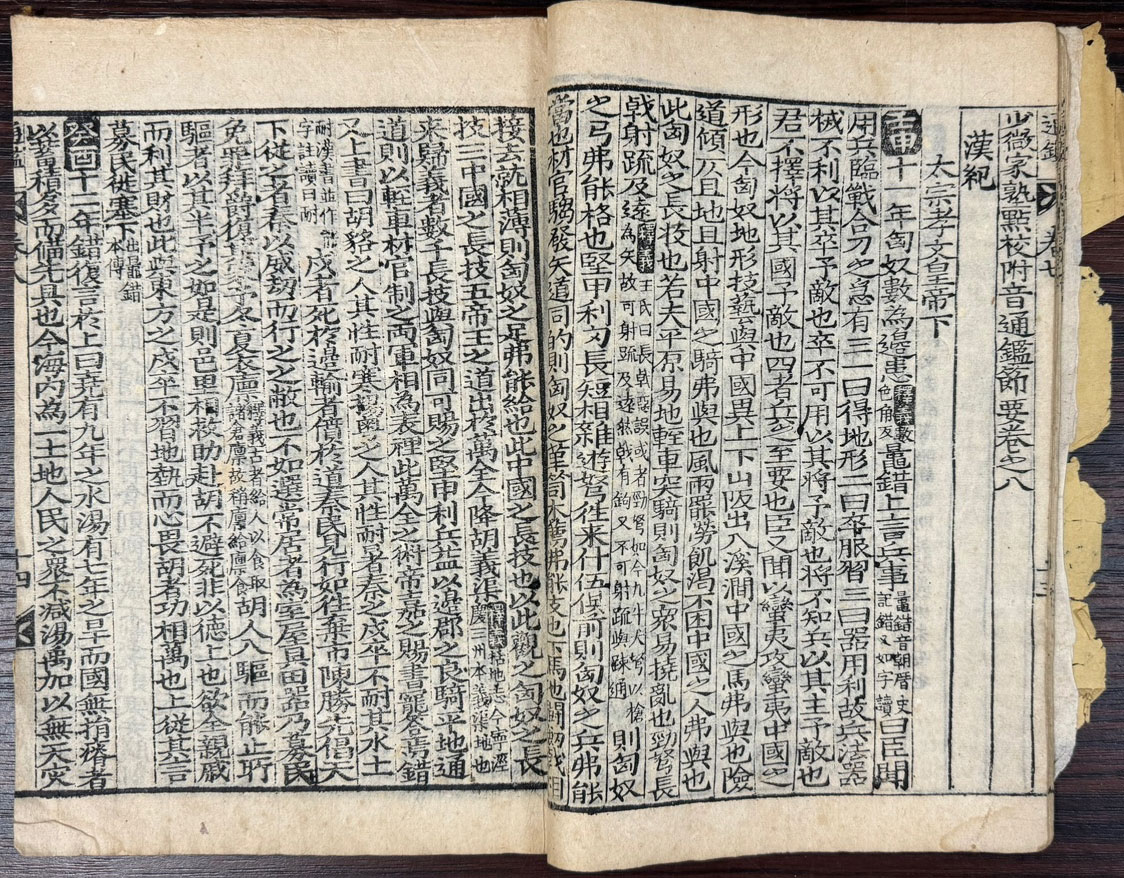 少微家塾點校附音通鑑節要卷之八
漢紀
太宗孝文皇帝下
壬申十一年匈奴數為邊患釋義數色角反鼂錯上言兵事鼂錯音朝厝史記錯又如字讀曰臣聞
用兵臨戰合刃之急有三一曰得地形二曰卒服習三曰器用利故兵法器
械不利以其卒予敵也卒不可用以其將予敵也將不知兵以其主予敵也
君不擇將以其國予敵也四者兵之至要也臣又聞以蠻夷攻蠻夷中國之
形也今匈奴地形技藝與中國異上下山阪出入溪澗中國之馬弗與也險
道傾仄且馳且射中國之騎弗與也風雨罷勞飢渴不困中國之人弗與也
此匈奴之長技也若夫平原易地輕車突騎則匈奴之衆易撓亂也勁弩長
戟射疏及遠釋義王氏曰長戟恐誤或者勁弩如今九牛大弩以槍為矢故可射疏及遠然戟有鉤又不可射疏與踈通則匈奴
之弓弗能格也堅甲利刃長短相雜遊弩往来什伍俱前則匈奴之兵弗能
當也材官騶發矢道同的則匈奴之革笥木薦弗能支也下馬地鬪劒戟相
接去就相薄則匈奴之足弗能給也此中國之長技也以此觀之匈奴之長
技三中國之長技五帝王之道出於萬全今降胡義渠釋義括地志今寧涇慶三州本義渠地也
来歸義者數千長技與匈奴同可賜之堅甲利兵益以邊郡之良騎平地通
道則以輕車材官制之兩軍相為表裡此萬全之術帝嘉之賜書寵答焉錯
又上書曰胡貉之人其性耐寒楊粵之人其性耐暑秦之戍卒不耐其水土
耐漢書並作能字註讀曰耐戍者死於邊輸者僨於道秦民見行如往棄市陳勝先倡天
下從之者秦以威劫而行之之敝也不如選常居者為室屋具田器乃募民
免罪拜爵復其家予冬夏衣廩釋義古者給人以食取諸倉廩故稱廩給廩食胡人入驅而能止所
驅者以其半予之如是則邑里相救助赴胡不避死非以德上也欲全親戚
而利其財也此與東方之戍卒不習地熱而心畏胡者功相萬也上從其言
募民徙塞下出鼂錯本傳
癸酉十二年錯復言於上曰堯有九年之水湯有七年之旱而國無捐瘠者
以蓄積多而備先具也今海內為一土地人民之眾不減湯禹加以無天灾